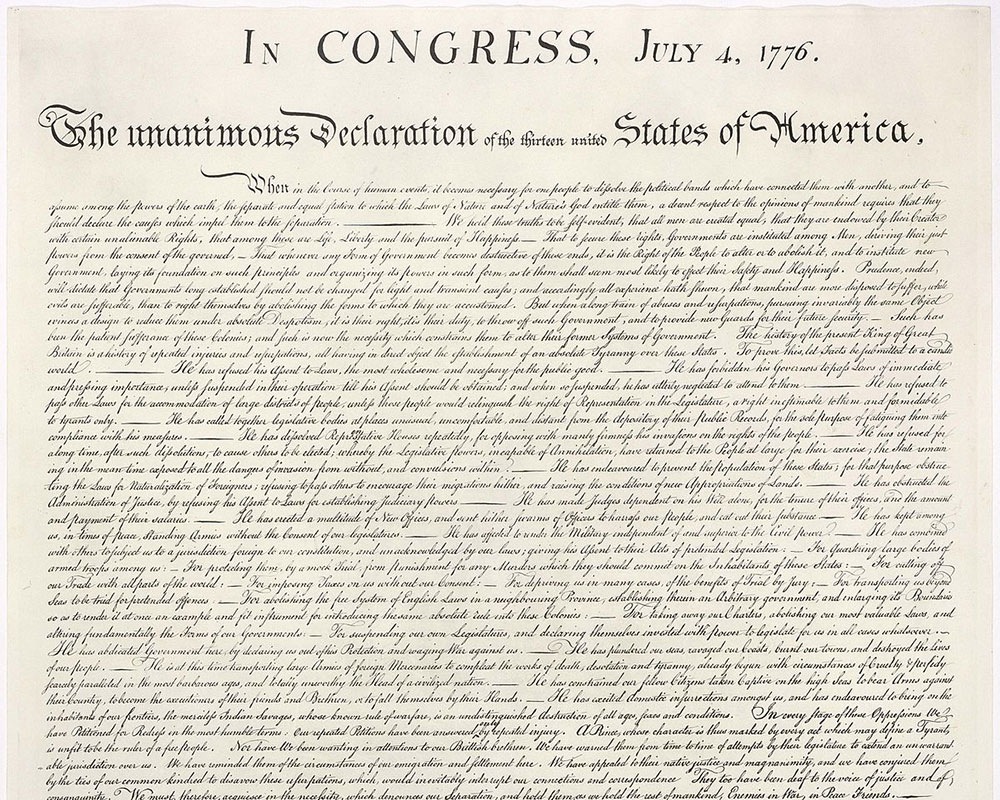 In CONGRESS, July 4, 1776.
The unanimous Declaration of the thirteen united States of America,
When in the Course of human events, it becomes necessary for one people to dissolve the political bands which have connected them with another, and to
assume among the powers of the earth, the separate and equal station to which the Laws of Nature and of Nature's God entitle them, a decent respect to the opinions of mankind requires that they
should declare the causes which impel them to the separation. ——— We hold these truths to be self-evident, that all men are created equal, that they are endowed by their Creator
with certain unalienable Rights, that among these are Life, Liberty and the pursuit of Happiness. — That to secure these rights, Governments are instituted among Men, deriving their just
powers from the consent of the governed, — That whenever any Form of Government becomes destructive of these ends, it is the Right of the People to alter or to abolish it, and to institute new
Government, laying its foundation on such principles and organizing its powers in such form, as to them shall seem most likely to effect their Safety and Happiness. Prudence, indeed,
will dictate that Governments long established should not be changed for light and transient causes; and accordingly all experience hath shewn, that mankind are more disposed to suffer, while
evils are sufferable, than to right themselves by abolishing the forms to which they are accustomed. But when a long train of abuses and usurpations, pursuing invariably the same Object
evinces a design to reduce them under absolute Despotism, it is their right, it is their duty, to throw off such Government, and to provide new Guards for their future security. — Such has
been the patient sufferance of these Colonies; and such is now the necessity which constrains them to alter their former Systems of Government. The history of the present King of Great
Britain is a history of repeated injuries and usurpations, all having in direct object the establishment of an absolute Tyranny over these States. To prove this, let Facts be submitted to a candid
world. ——— He has refused his Assent to Laws, the most wholesome and necessary for the public good. ——— He has forbidden his Governors to pass Laws of immediate
and pressing importance, unless suspended in their operation till his Assent should be obtained; and when so suspended, he has utterly neglected to attend to them. ——— He has refused to
pass other Laws for the accommodation of large districts of people, unless those people would relinquish the right of Representation in the Legislature, a right inestimable to them and formidable
to tyrants only. ——— He has called together legislative bodies at places unusual, uncomfortable, and distant from the depository of their Public Records, for the sole purpose of fatiguing them into
compliance with his measures. ——— He has dissolved Representative Houses repeatedly, for opposing with manly firmness his invasions on the rights of the people. ——— He has refused for
a long time, after such dissolutions, to cause others to be elected; whereby the Legislative powers, incapable of Annihilation, have returned to the People at large for their exercise; the State remain-
ing in the mean time exposed to all the dangers of invasion from without, and convulsions within. ——— He has endeavoured to prevent the population of these States; for that purpose obstruc-
ting the Laws for Naturalization of Foreigners; refusing to pass others to encourage their migrations hither, and raising the conditions of new Appropriations of Lands. ——— He has obstructed the
Administration of Justice, by refusing his Assent to Laws for establishing Judiciary powers. ——— He has made Judges dependent on his Will alone, for the tenure of their offices, and the amount
and payment of their salaries. ——— He has erected a multitude of New Offices, and sent hither swarms of Officers to harrass our people, and eat out their substance. ——— He has kept among
us, in times of peace, Standing Armies without the Consent of our legislatures. ——— He has affected to render the Military independent of and superior to the Civil power. ——— He has combined
with others to subject us to a jurisdiction foreign to our constitution, and unacknowledged by our laws; giving his Assent to their Acts of pretended Legislation: — For Quartering large bodies of
armed troops among us: — For protecting them, by a mock Trial, from punishment for any Murders which they should commit on the Inhabitants of these States: — For cutting off
our Trade with all parts of the world: — For imposing Taxes on us without our Consent: — For depriving us in many cases, of the benefits of Trial by Jury: — For transporting us beyond
Seas to be tried for pretended offences: — For abolishing the free System of English Laws in a neighbouring Province, establishing therein an Arbitrary government, and enlarging its Boundaries
so as to render it at once an example and fit instrument for introducing the same absolute rule into these Colonies: — For taking away our Charters, abolishing our most valuable Laws, and
altering fundamentally the Forms of our Governments: — For suspending our own Legislatures, and declaring themselves invested with power to legislate for us in all cases whatsoever. —
He has abdicated Government here, by declaring us out of his Protection and waging War against us. ——— He has plundered our seas, ravaged our Coasts, burnt our towns, and destroyed the lives
of our people. ——— He is at this time transporting large Armies of foreign Mercenaries to compleat the works of death, desolation and tyranny, already begun with circumstances of Cruelty & perfidy
scarcely paralleled in the most barbarous ages, and totally unworthy the Head of a civilized nation. ——— He has constrained our fellow Citizens taken Captive on the high Seas to bear Arms against
their Country, to become the executioners of their friends and Brethren, or to fall themselves by their Hands. ——— He has excited domestic insurrections amongst us, and has endeavoured to bring on the
inhabitants of our frontiers, the merciless Indian Savages, whose known rule of warfare, is an undistinguished destruction of all ages, sexes and conditions. In every stage of these Oppressions We
have Petitioned for Redress in the most humble terms: Our repeated Petitions have been answered only by repeated injury. A Prince, whose character is thus marked by every act which may define a Tyrant,
is unfit to be the ruler of a free people. Nor have We been wanting in attentions to our Brittish brethren. We have warned them from time to time of attempts by their legislature to extend an unwarrant-
able jurisdiction over us. We have reminded them of the circumstances of our emigration and settlement here. We have appealed to their native justice and magnanimity, and we have conjured them
by the ties of our common kindred to disavow these usurpations, which, would inevitably interrupt our connections and correspondence. They too have been deaf to the voice of justice and of
consanguinity. We must, therefore, acquiesce in the necessity, which denounces our Separation, and hold them, as we hold the rest of mankind, Enemies in War, in Peace Friends. ———